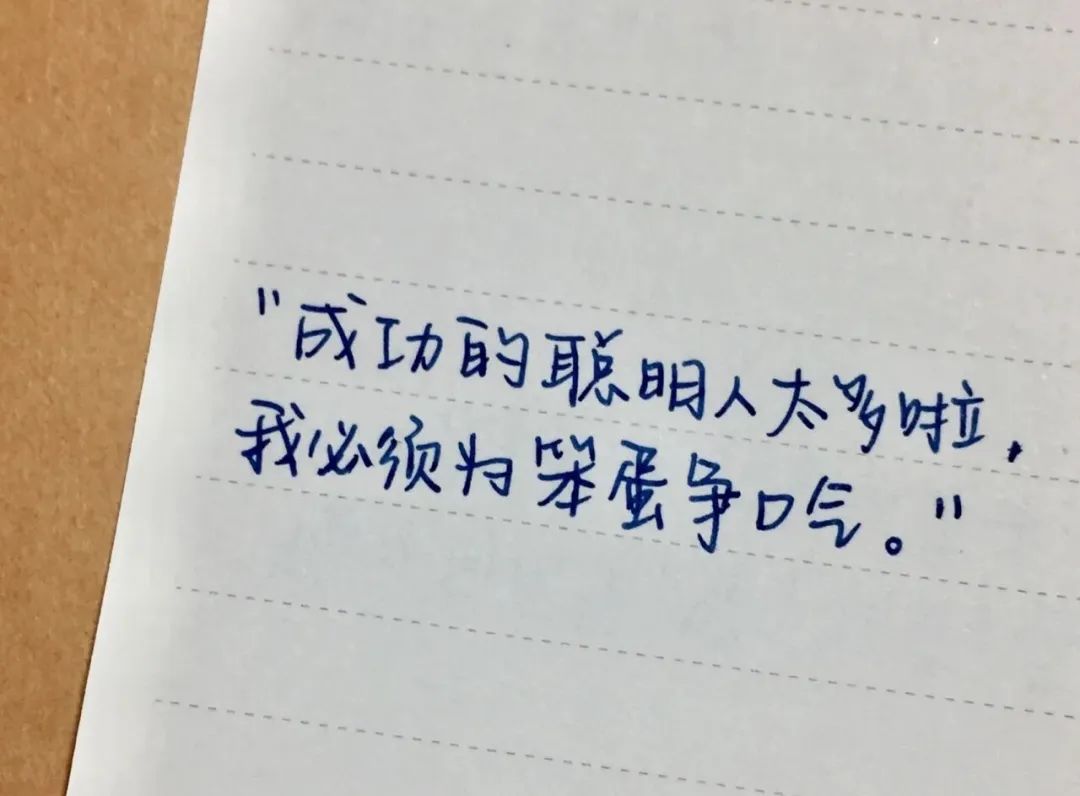 "成功的聪明人太多啦,
我必须为笨蛋争口气。"